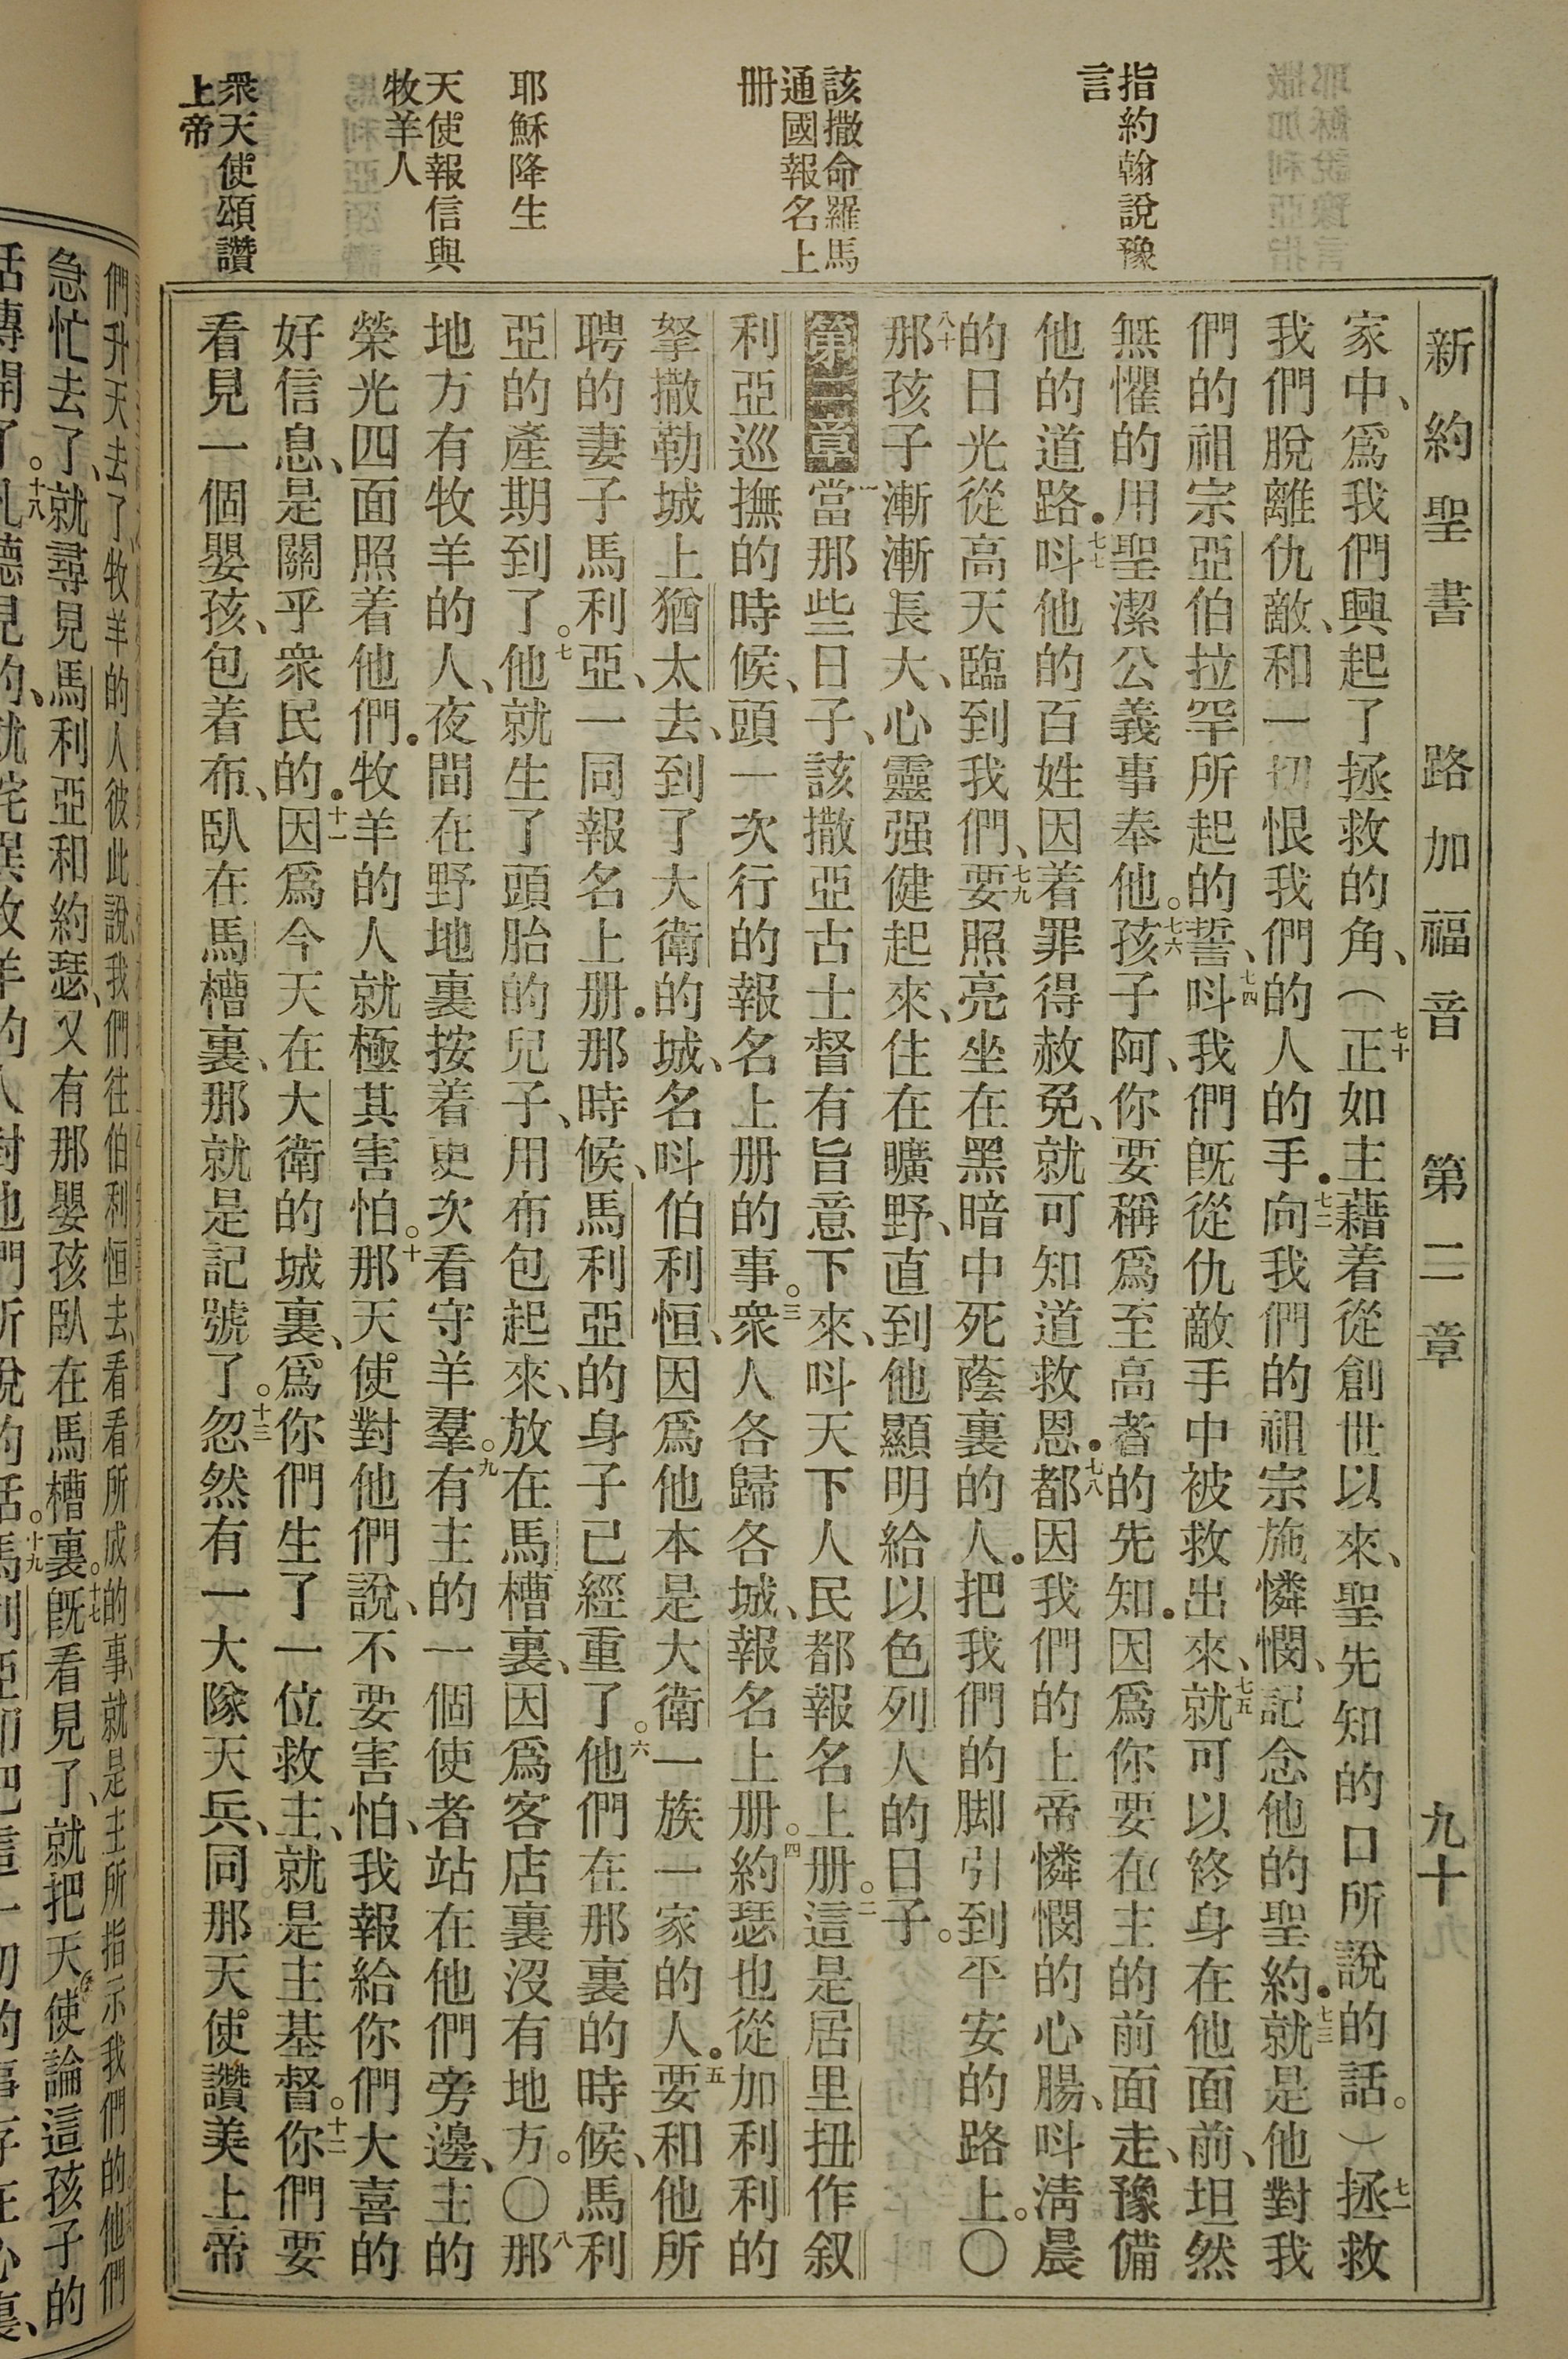 新約聖書　路加福音　第二章　九十
指約翰說豫
言
該撒命羅馬
通國報名上
册
耶穌降生
天使報信與
牧羊人
衆天使頌讚
上帝
家中、爲我們興起了拯救的角、（七十正如主藉着從創世以來、聖先知的口所說的話。）七一拯救
我們脫離仇敵、和一切恨我們的人的手．七二向我們的祖宗施憐憫、記念他的聖約．七三就是他對我
們的祖宗亞伯拉罕所起的誓、七四呌我們旣從仇敵手中被救出來、七五就可以終身在他面前、坦然
無懼的用聖潔公義事奉他。七六孩子阿、你要稱爲至高者的先知．因爲你要在主的前面走、豫備
他的道路．七七呌他的百姓因着罪得赦免、就可知道救恩．七八都因我們的上帝憐憫的心腸、呌淸晨
的日光從高天臨到我們、七九要照亮坐在黑暗中死蔭裏的人．把我們的脚引到平安的路上。〇
八十那孩子漸漸長大、心靈强健起來、住在曠野、直到他顯明給以色列人的日子。
第二章一當那些日子、該撒亞古士督有旨意下來、呌天下人民都報名上册。二這是居里扭作叙
利亞巡撫的時候、頭一次行的報名上册的事。三衆人各歸各城、報名上册。四約瑟也從加利利的
拏撒勒城上猶太去、到了大衛的城、名呌伯利恒、因爲他本是大衛一族一家的人．五要和他所
聘的妻子馬利亞、一同報名上册．那時候、馬利亞的身子已經重了。六他們在那裏的時候、馬利
亞的產期到了。七他就生了頭胎的兒子、用布包起來、放在馬槽裏、因爲客店裏沒有地方。〇八那
地方有牧羊的人、夜間在野地裏按着更次看守羊羣。九有主的一個使者站在他們旁邊、主的
榮光四面照着他們．牧羊的人就極其害怕。十那天使對他們說、不要害怕、我報給你們大喜的
好信息、是關乎衆民的．十一因爲今天在大衛的城裏、爲你們生了一位救主、就是主基督。十二你們要
看見一個嬰孩、包着布、臥在馬槽裏、那就是記號了。十三忽然有一大隊天兵、同那天使讚美上帝
們升天去了、牧羊的人彼此說、我們往伯利恒去、看看所成的事、就是主所指示我們的他們
急忙去了、就尋見馬利亞和約瑟、又有那嬰孩臥在馬槽裏。十七旣看見了、就把天使論這孩子的
話傳開了。十八